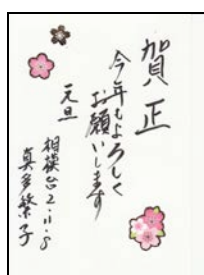 賀正
今年もよろしく
お願いします
元旦
相模台2-11-8
真多繁子